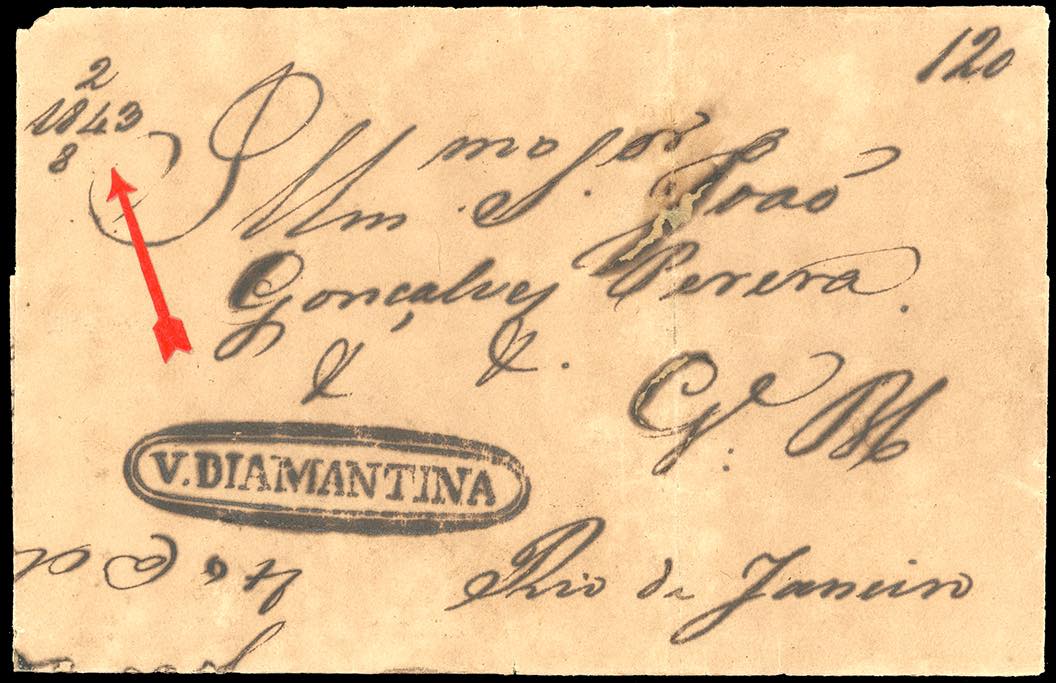 120
2
1843
8
Illm S.or major João
Gonçalves Pereira.
& &.
G.e M
V. DIAMANTINA
Rio de Janeiro